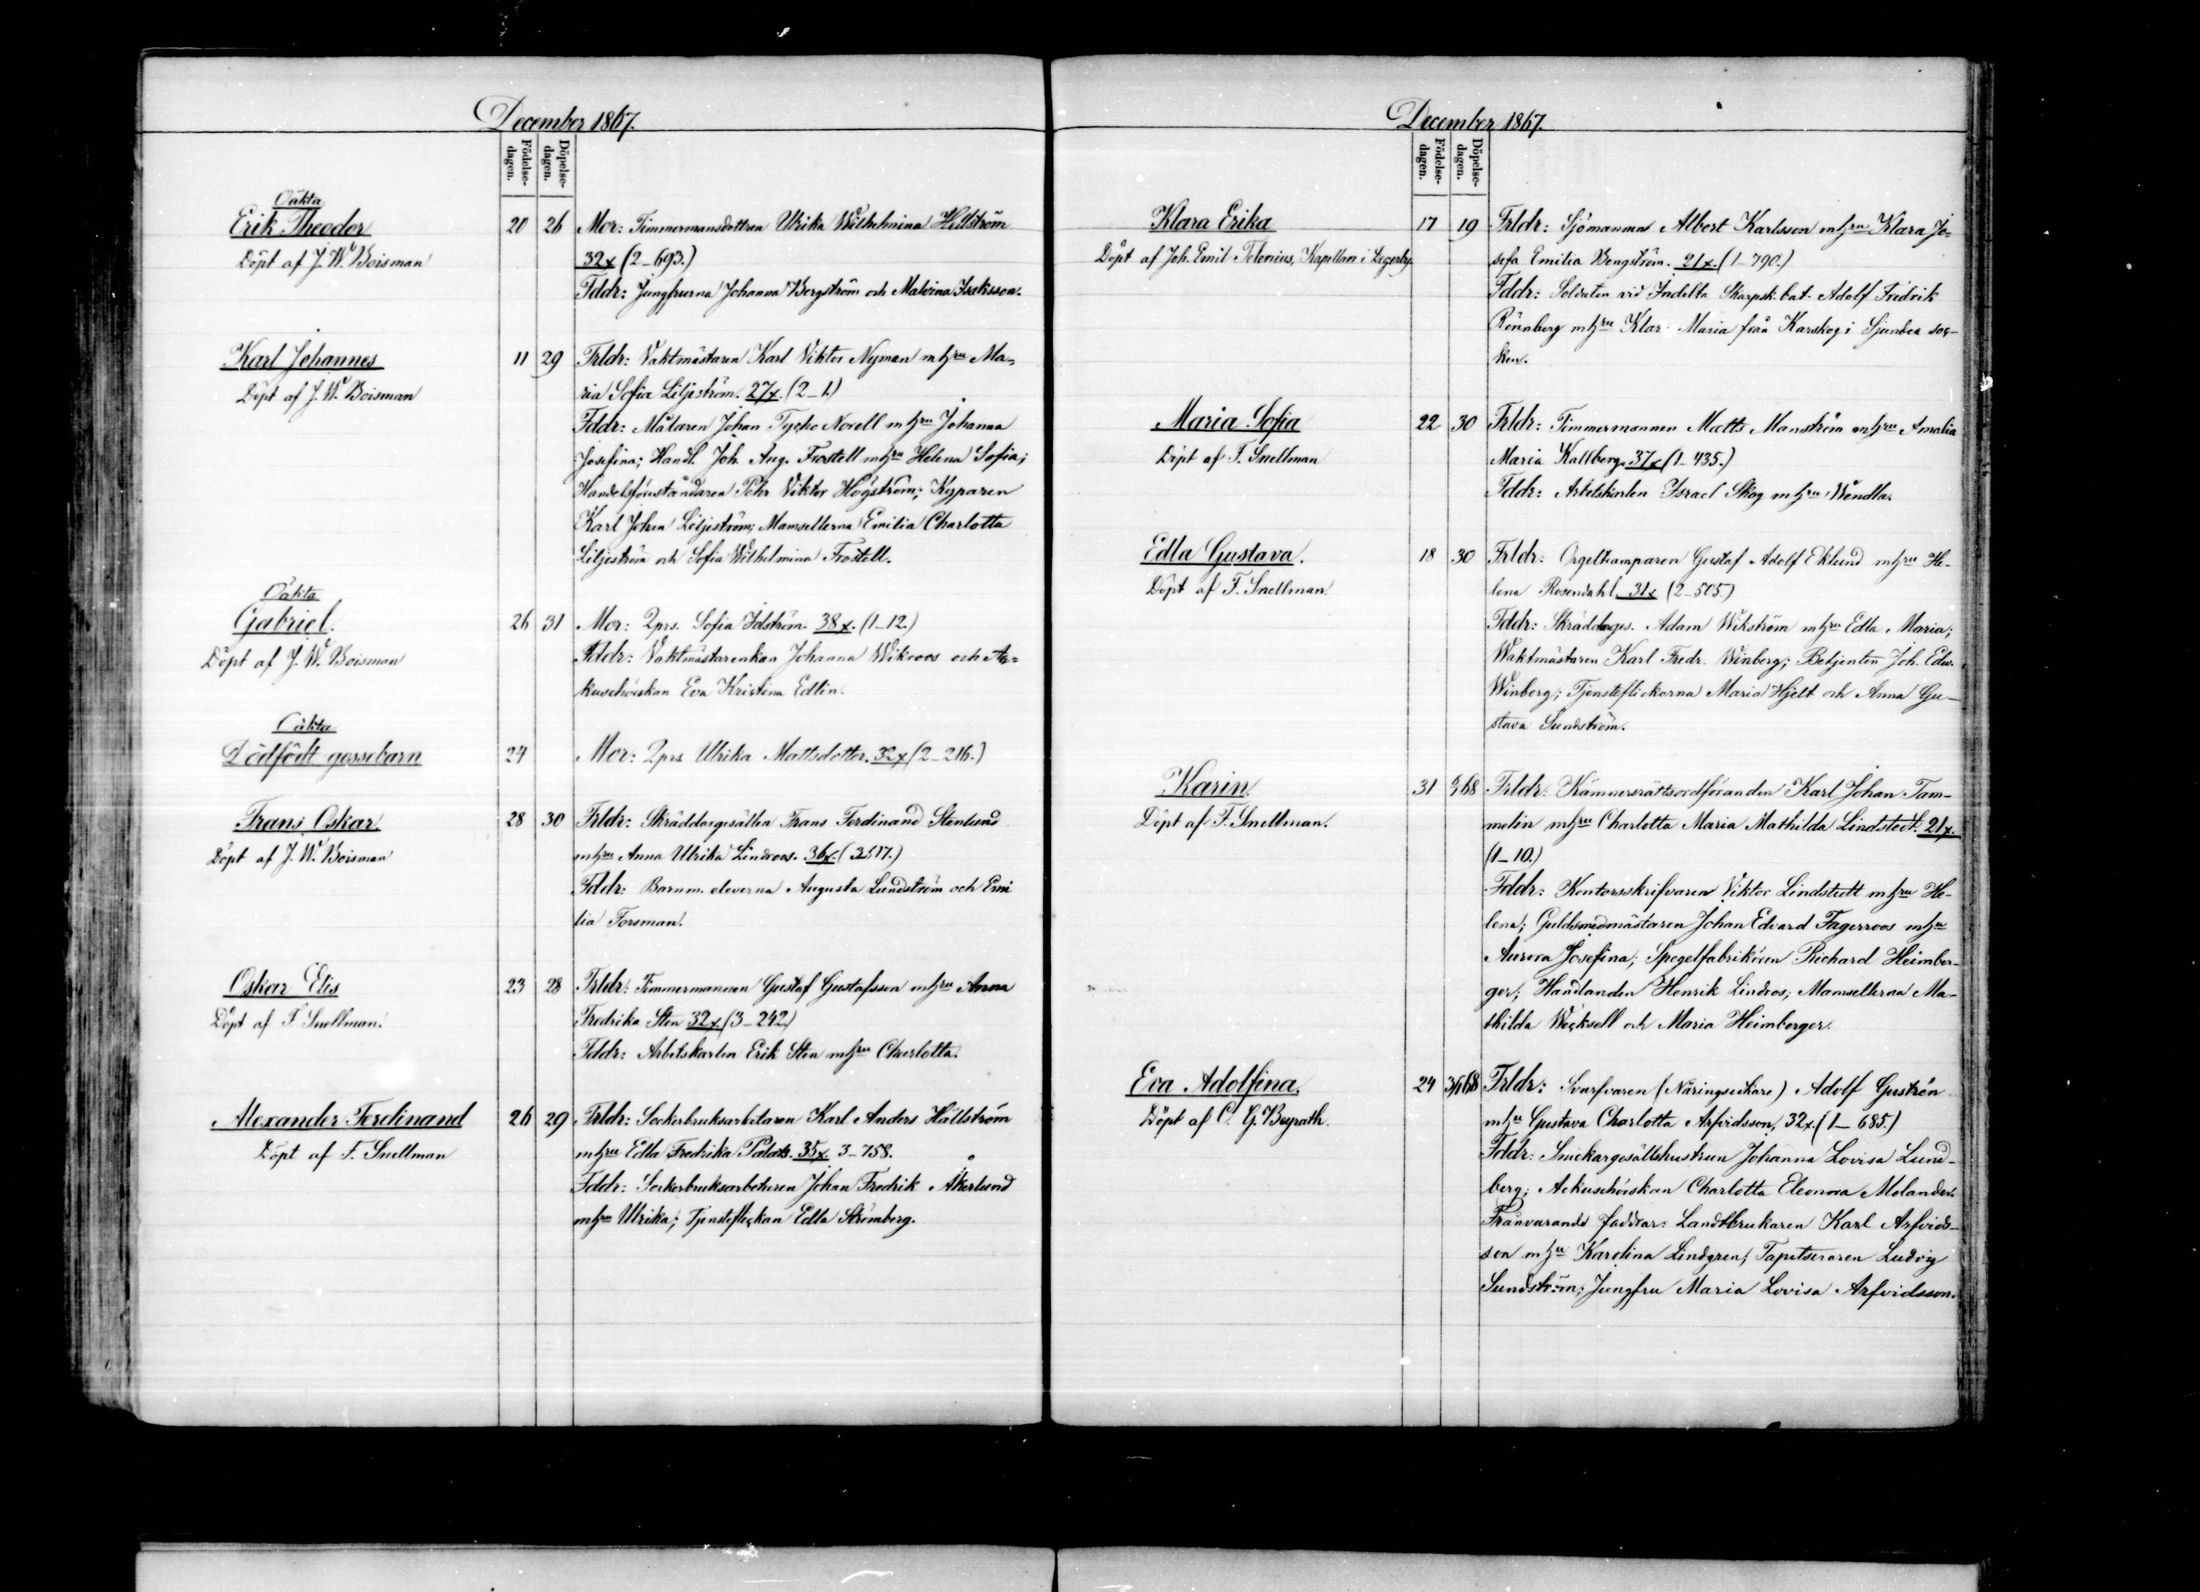 December 1867.
Födelse-
dagen.
Döpelse-
dagen.
Oäkta
Erik Theodor 20 26 Mor: Timmermansdottren Ulrika Wilhelmina Hellström
Döpt af J. W. Boisman 32x (2-693.)
Fddr: Jungfrurna Johanna Bergström och Malvina Isaksson.
Karl Johannes 11 29 Frldr: Vaktmästaren Karl Viktor Nyman m hru Ma-
Döpt af J. W. Boisman ria Sofia Liljeström. 27x. (2-1.)
Fddr: Målaren Johan Tycho Norell m hru Johanna
Josefina; Handl. Joh. Aug. Frostell m hru Helena Sofia;
Handelsföreståndaren Pehr Viktor Högström; Kyparen
Karl Johan Liljeström; Mamsellerna Emilia Charlotta
Liljeström och Sofia Wilhelmina Frostell.
Oäkta
Gabriel. 26 31 Mor: Qprs. Sofia Idström. 38x. (1-12.)
Döpt af J. W. Boisman Fddr: Vaktmästarenkan Johanna Wikroos och Ac-
kuschörskan Eva Kristina Edlin.
Oäkta
Dödfödt gossebarn 24 Mor: Qprs Ulrika Mattsdotter. 32x (2-216.)
Frans Oskar 28 30 Frldr: Skräddargesällen Frans Ferdinand Stenlund
Döpt af J. W. Boisman m hru Anna Ulrika Lindroos. 36x. (3517.)
Fddr: Barnm. eleverna Augusta Lundström och Emi
lia Forsman.
Oskar Elis 23 28 Frldr: Timmermannen Gustaf Gustafsson m hru Anna
Döpt af F. Snellman. Fredrika Sten 32x (3-242)
Fddr: Arbetskarlen Erik Sten m hru Charlotta.
Alexander Ferdinand 26 29 Frldr: Sockerbruksarbetaren Karl Anders Hällström
Döpt af F. Snellman m hru Edla Fredrika Palats. 35x 3-758.
Fddr: Sockerbruksarbetaren Johan Fredrik Åkerlund
m hru Ulrika; Tjensteflickan Edla Strömberg.
December 1867.
Födelse-
dagen.
Döpelse-
dagen.
Klara Erika 17 19 Frldr: Sjömannen Albert Karlsson m hru Klara Jo-
Döpt af Joh. Emil Telenius, Kapellan i Degerby. sefa Emilia Bengström. 21x. (1-790.)
Fddr: Soldaten vid Indelta Skarpsk. bat. Adolf Fredrik
Rönnberg m hru Klar Maria från Karskog i Sjundea soc-
ken.
Maria Sofia 22 30 Frldr: Timmermannen Matts Manström m hru Amalia
Döpt af F. Snellman Maria Kallberg. 37x (1-435.)
Fddr: Arbetskarlen Israel Skog m hru Wendla.
Edla Gustava. 18 30 Frldr: Orgeltramparen Gustaf Adolf Eklund m hru He-
Döpt af F. Snellman. lena Rosendahl. 31x (2-505)
Fddr: Skräddarges. Adam Wikström m hru Edla Maria;
Waktmästaren Karl Fredr. Winberg; Betjenten Joh. Edw.
Winberg; Tjensteflickorna Maria Hjelt och Anna Gu-
stava Sundström.
Karin. 31 68 Frldr: Kämnersrättsordföranden Karl Johan Tam-
Döpt af F. Snellman. melin m hru Charlotta Maria Mathilda Lindstedt. 21x.
(1-10.)
Fddr: Kontorsskrifvaren Viktor Lindstedt m hru He-
lena; Guldsmedmästaren Johan Edvard Fagerroos m hru
Aurora Josefina; Spegelfabrikören Richard Heimber-
ger; Handlanden Henrik Lindros; Mamsellerna Ma-
thilda Wecksell och Maria Heimberger.
Eva Adolfina. 24 3/1 68 Frldr: Svarfvaren (Näringsidkare) Adolf Gustrén
Döpt af C. G. Beyrath. m hru Gustava Charlotta Arfvidsson. 32x. (1-685.)
Fddr: Snickargesällshustrun Johanna Lovisa Lund-
berg; Ackuschörskan Charlotta Eleonora Molander.
Frånvarande faddrar: Landtbrukaren Karl Arfvids-
son m hru Karolina Lindgren; Tapetseraren Ludvig
Sundström; Jungfru Maria Lovisa Arfvidsson.